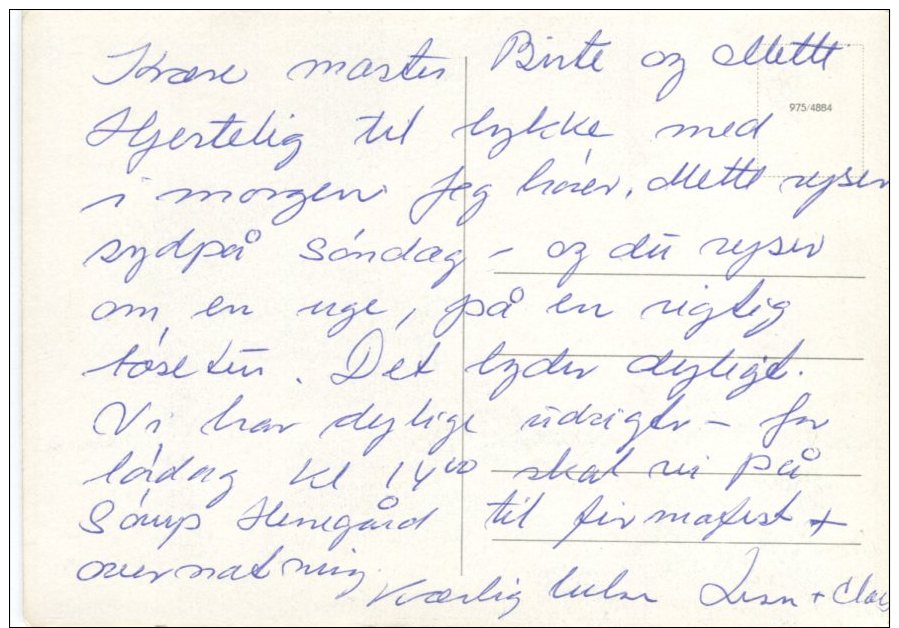 Kære moster Birte og Mette
975/4884
Hjertelig til lykke med
i morgen Jeg hører, Mette rejser
sydpå Søndag – og du rejser
om en uge, på en rigtig
tøsetur. Det lyder dejligt.
Vi har dejlige udsigter – for
lørdag kl 14⁰⁰ skal vi på
Sørup Herregård til firmafest +
overnatning.
Kærlig hilsen + Claus